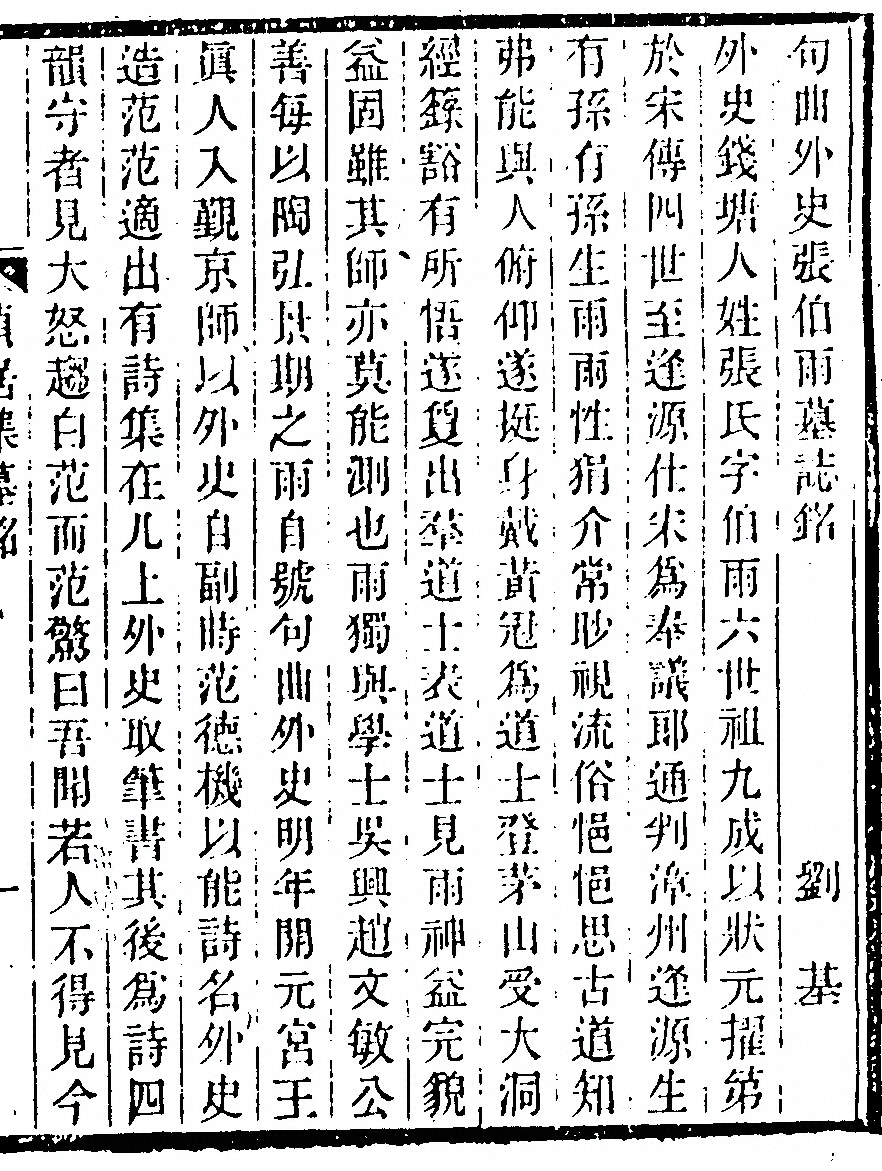 句曲外史張伯雨墓誌銘 劉基
外史錢塘人姓張氏字伯雨六世祖九成以狀元擢第
於宋傳四世至逢源仕宋為奉議郎通判漳州逢源生
有孫有孫生雨雨性狷介常眇視流俗悒悒思古道知
弗能與人俯仰遂挺身戴黃冠為道士登茅山受大洞
經籙豁有所悟遂負出羣道士表道士見雨神益完貌
益固雖其師亦莫能測也雨獨與學士吳興趙文敏公
善每以陶弘景期之雨自號句曲外史明年開元宮王
眞人入覲京師以外史自副時范德機以能詩名外史
造范范適出有詩集在几上外史取筆書其後為詩四
韻守者見大怒趨白范而范驚曰吾聞若人不得見今
貞居集墓銘 一